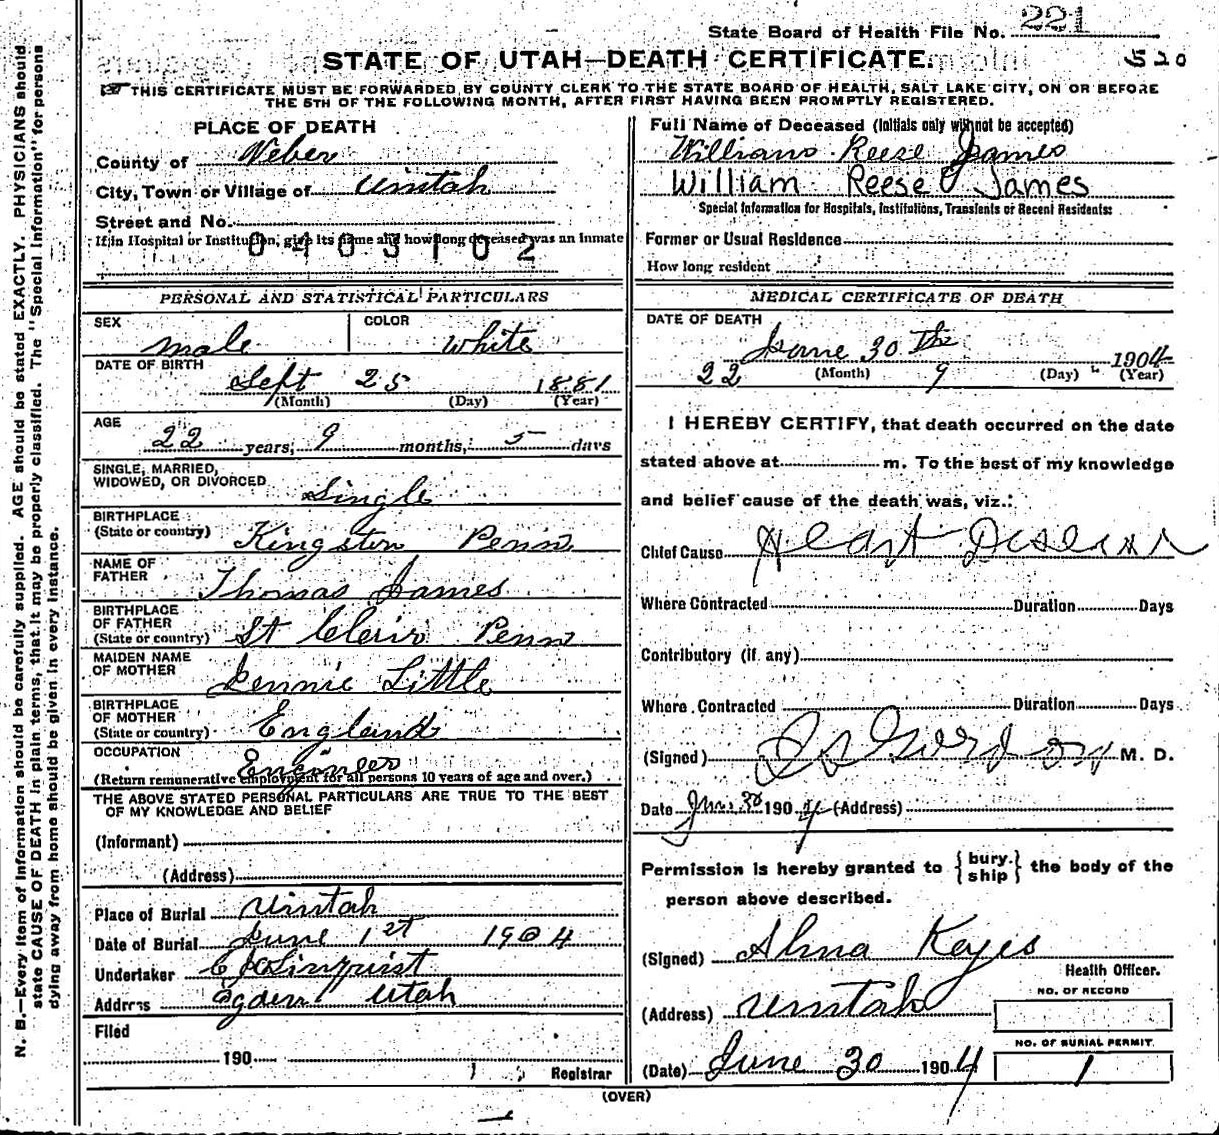 State Board of Health File No. 221
STATE OF UTAH—DEATH CERTIFICATE.
520
THIS CERTIFICATE MUST BE FORWARDED BY COUNTY CLERK TO THE STATE BOARD OF HEALTH, SALT LAKE CITY, ON OR BEFORE
THE 5TH OF THE FOLLOWING MONTH, AFTER FIRST HAVING BEEN PROMPTLY REGISTERED.
N. B.—Every item of Information should be carefully supplied. AGE should be stated EXACTLY. PHYSICIANS should
state CAUSE OF DEATH in plain terms, that it may be properly classified. The "Special Information" for persons
dying away from home should be given in every instance.
PLACE OF DEATH
County of Weber
City, Town or Village of Uintah
Street and No.
If in Hospital or Institution, give its name and how long deceased was an inmate
0403102
PERSONAL AND STATISTICAL PARTICULARS
SEX male COLOR White
DATE OF BIRTH
Sept 25 1881
(Month) (Day) (Year)
AGE
22 years, 9 months, 5 days
SINGLE, MARRIED,
WIDOWED, OR DIVORCED Single
BIRTHPLACE
(State or country) Kingston Penn
NAME OF
FATHER Thomas James
BIRTHPLACE
OF FATHER
(State or country) St Clair Penn
MAIDEN NAME
OF MOTHER Jennie Little
BIRTHPLACE
OF MOTHER
(State or country) England
OCCUPATION Engineer
(Return remunerative employment for all persons 10 years of age and over.)
THE ABOVE STATED PERSONAL PARTICULARS ARE TRUE TO THE BEST
OF MY KNOWLEDGE AND BELIEF
(Informant)
(Address)
Place of Burial Uintah
Date of Burial June 1st 1904
Undertaker Linquist
Address Ogden Utah
Filed
190
Registrar
Full Name of Deceased (Initials only will not be accepted)
William Reese James
William Reese James
Special Information for Hospitals, Institutions, Transients or Recent Residents:
Former or Usual Residence
How long resident
MEDICAL CERTIFICATE OF DEATH
DATE OF DEATH
June 30 Th 1904
22 (Month) 9 (Day) (Year)
I HEREBY CERTIFY, that death occurred on the date
stated above at m. To the best of my knowledge
and belief cause of the death was, viz.:
Chief Cause Heart Disease
Where Contracted Duration Days
Contributory (if any)
Where Contracted Duration Days
(Signed) Gordon M. D.
Date Jun 30 1904 (Address)
Permission is hereby granted to { bury ship } the body of the
person above described.
(Signed) Alma Keyes
Health Officer.
(Address) Uintah
NO. OF RECORD
NO. OF BURIAL PERMIT.
(Date) June 30 1904 1
(OVER)